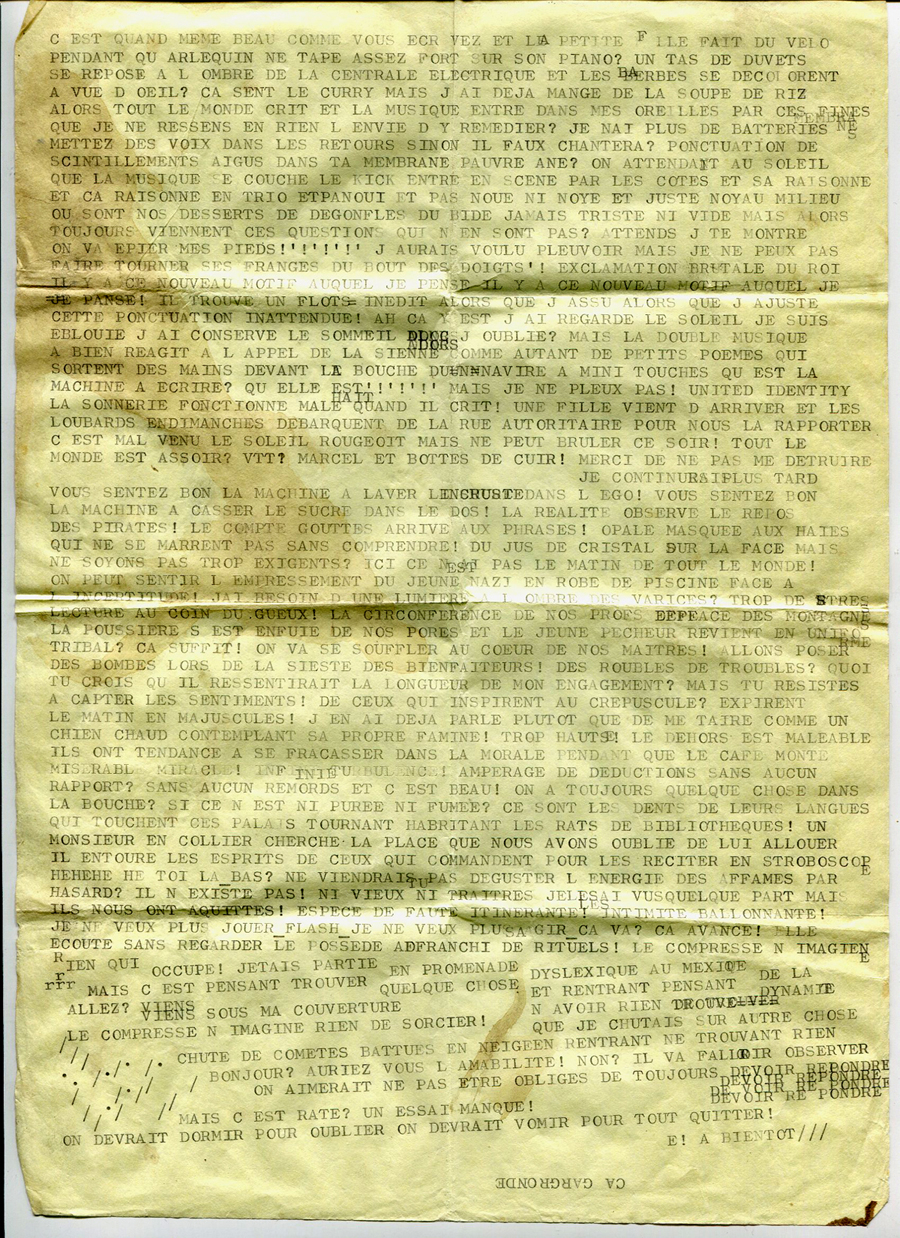 C EST QUAND MEME BEAU COMME VOUS ECR VEZ ET LA PETITE F ILE FAIT DU VELO
PENDANT QU ARLEQUIN NE TAPE ASSEZ FORT SUR SON PIANO? UN TAS DE DUVETS
SE REPOSE A L OMBRE DE LA CENTRALE ELECTRIQUE ET LES BA ERBES SE DECOLORENT
A VUE D OEIL? CA SENT LE CURRY MAIS J AI DEJA MANGE DE LA SOUPE DE RIZ
ALORS TOUT LE MONDE CRIT ET LA MUSIQUE ENTRE DANS MES OREILLES PAR CES FINES
QUE JE NE RESSENS EN RIEN L ENVIE D Y REMEDIER? JE NAI PLUS DE BATTERIES NE
METTEZ DES VOIX DANS LES RETOURS SINON IL FAUX CHANTERA? PONCTUATION DE
SCINTILLEMENTS AIGUS DANS TA MEMBRANE PAUVRE ANE? ON ATTENDANT AU SOLEIL
QUE LA MUSIQUE SE COUCHE LE KICK ENTRE EN SCENE PAR LES COTES ET SA RAISONNE
ET CA RAISONNE EN TRIO ETPANOUI ET PAS NOUE NI NOYE ET JUSTE NOYAU MILIEU
OU SONT NOS DESSERTS DE DEGONFLES DU BIDE JAMAIS TRISTE NI VIDE MAIS ALORS
TOUJOURS VIENNENT CES QUESTIONS QUI N EN SONT PAS? ATTENDS J TE MONTRE
ON VA EPIER MES PIEDS!'!'!'!' J AURAIS VOULU PLEUVOIR MAIS JE NE PEUX PAS
FAIRE TOURNER SES FRANGES DU BOUT DES DOIGTS'! EXCLAMATION BRUTALE DU ROI
IL Y A CE NOUVEAU MOTIF AUQUEL JE PENSE IL Y A CE NOUVEAU MOTIF AUQUEL JE
JE PANSE! IL TROUVE UN FLOTS= INEDIT ALORS QUE J ASSU ALORS QUE J AJUSTE
CETTE PONCTUATION INATTENDUE! AH CA Y EST J AI REGARDE LE SOLEIL JE SUIS
EBLOUIE J AI CONSERVE LE SOMMEIL NDORS J OUBLIE? MAIS LA DOUBLE MUSIQUE
A BIEN REAGIT A L APPEL DE LA SIENNE COMME AUTANT DE PETITS POEMES QUI
SORTENT DES MAINS DEVANT LA BOUCHE DU NAVIRE A MINI TOUCHES QU EST LA
MACHINE A ECRIRE? QU ELLE EST!'!'!'!' MAIS JE NE PLEUX PAS! UNITED IDENTITY
HAIT
LA SONNERIE FONCTIONNE MALE QUAND IL CRIT! UNE FILLE VIENT D ARRIVER ET LES
LOUBARDS ENDIMANCHES DEBARQUENT DE LA RUE AUTORITAIRE POUR NOUS LA RAPPORTER
C EST MAL VENU LE SOLEIL ROUGEOIT MAIS NE PEUT BRULER CE SOIR! TOUT LE
MONDE EST ASSOIR? VTT? MARCEL ET BOTTES DE CUIR! MERCI DE NE PAS ME DETRUIRE
JE CONTINURAIPLUS TARD
VOUS SENTEZ BON LA MACHINE A LAVER L INCRUSTE DANS L EGO! VOUS SENTEZ BON
LA MACHINE A CASSER LE SUCRE DANS LE DOS! LA REALITE OBSERVE LE REPOS
DES PIRATES! LE COMPTE GOUTTES ARRIVE AUX PHRASES! OPALE MASQUEE AUX HAIES
QUI NE SE MARRENT PAS SANS COMPRENDRE! DU JUS DE CRISTAL SUR LA FACE MAIS
NE SOYONS PAS TROP EXIGENTS? ICI CE N EST PAS LE MATIN DE TOUT LE MONDE!
ON PEUT SENTIR L EMPRESSEMENT DU JEUNE NAZI EN ROBE DE PISCINE FACE A
L INCERTITUDE! JAI BESOIN D UNE LUMIERE A L OMBRE DES VARICES? TROP DE STRES
LECTURE AU COIN DU GUEUX! LA CIRCONFERENCE DE NOS PROFS EEFFACE DES MONTAGNE
LA POUSSIERE S EST ENFUIE DE NOS PORES ET LE JEUNE PECHEUR REVIENT EN UNIFO
RME
TRIBAL? CA SUFFIT! ON VA SE SOUFFLER AU COEUR DE NOS MAITRES! ALLONS POSER
DES BOMBES LORS DE LA SIESTE DES BIENFAITEURS! DES ROUBLES DE TROUBLES? QUOI
TU CROIS QU IL RESSENTIRAIT LA LONGUEUR DE MON ENGAGEMENT? MAIS TU RESISTES
A CAPTER LES SENTIMENTS! DE CEUX QUI INSPIRENT AU CREPUSCULE? EXPIRENT
LE MATIN EN MAJUSCULES! J EN AI DEJA PARLE PLUTOT QUE DE ME TAIRE COMME UN
CHIEN CHAUD CONTEMPLANT SA PROPRE FAMINE! TROP HAUTSE! LE DEHORS EST MALEABLE
ILS ONT TENDANCE A SE FRACASSER DANS LA MORALE PENDANT QUE LE CAFE MONTE
MISERABL MIRACLE! INFINIE TURBULENCE! AMPERAGE DE DEDUCTIONS SANS AUCUN
RAPPORT? SANS AUCUN REMORDS ET C EST BEAU! ON A TOUJOURS QUELQUE CHOSE DANS
LA BOUCHE? SI CE N EST NI PUREE NI FUMEE? CE SONT LES DENTS DE LEURS LANGUES
QUI TOUCHENT CES PALAIS TOURNANT HABRITANT LES RATS DE BIBLIOTHEQUES! UN
MONSIEUR EN COLLIER CHERCHE LA PLACE QUE NOUS AVONS OUBLIE DE LUI ALLOUER
IL ENTOURE LES ESPRITS DE CEUX QUI COMMANDENT POUR LES RECITER EN STROBOSCOP
E
HEHEHE HE TOI LA_BAS? NE VIENDRAIS TU PAS DEGUSTER L ENERGIE DES AFFAMES PAR
HASARD? IL N EXISTE PAS! NI VIEUX NI TRAITRES JELESAI VUSQUELQUE PART MAIS
LUS
ILS NOUS ONT AQUITTES! ESPECE DE FAUTE ITINERANTE! INTIMITE BALLONNANTE!
JE NE VEUX PLUS JOUER_FLASH_JE NE VEUX PLUSSAGIR_CA VA? CA AVANCE! ELLE
ECOUTE SANS REGARDER LE POSSEDE ADFRANCHI DE RITUELS! LE COMPRESSE N IMAGIEN
E
RIEN QUI OCCUPE! JETAIS PARTIE EN PROMENADE DYSLEXIQUE AU MEXIQE DE LA
rrr MAIS C EST PENSANT TROUVER QUELQUE CHOSE ET RENTRANT PENSANT DYNAMIE
ALLEZ? VIENS SOUS MA COUVERTURE N AVOIR RIEN TROUVE
VIENS
LE COMPRESSE N IMAGINE RIEN DE SORCIER! QUE JE CHUTAIS SUR AUTRE CHOSE
CHUTE DE COMETES BATTUES EN NEIGEEN RENTRANT NE TROUVANT RIEN
BONJOUR? AURIEZ VOUS L AMABILITE! NON? IL VA FALLOIR OBSERVER
ON AIMERAIT NE PAS ETRE OBLIGES DE TOUJOURS DEVOIR REPONDRE
DEVOIR REPONDRE
DE VOIR RE PONDRE
DEVOIR RE PONDRE
MAIS C EST RATE? UN ESSAI MANQUE!
ON DEVRAIT DORMIR POUR OUBLIER ON DEVRAIT VOMIR POUR TOUT QUITTER!
E! A BIENTOT///
CA GARGRONDE